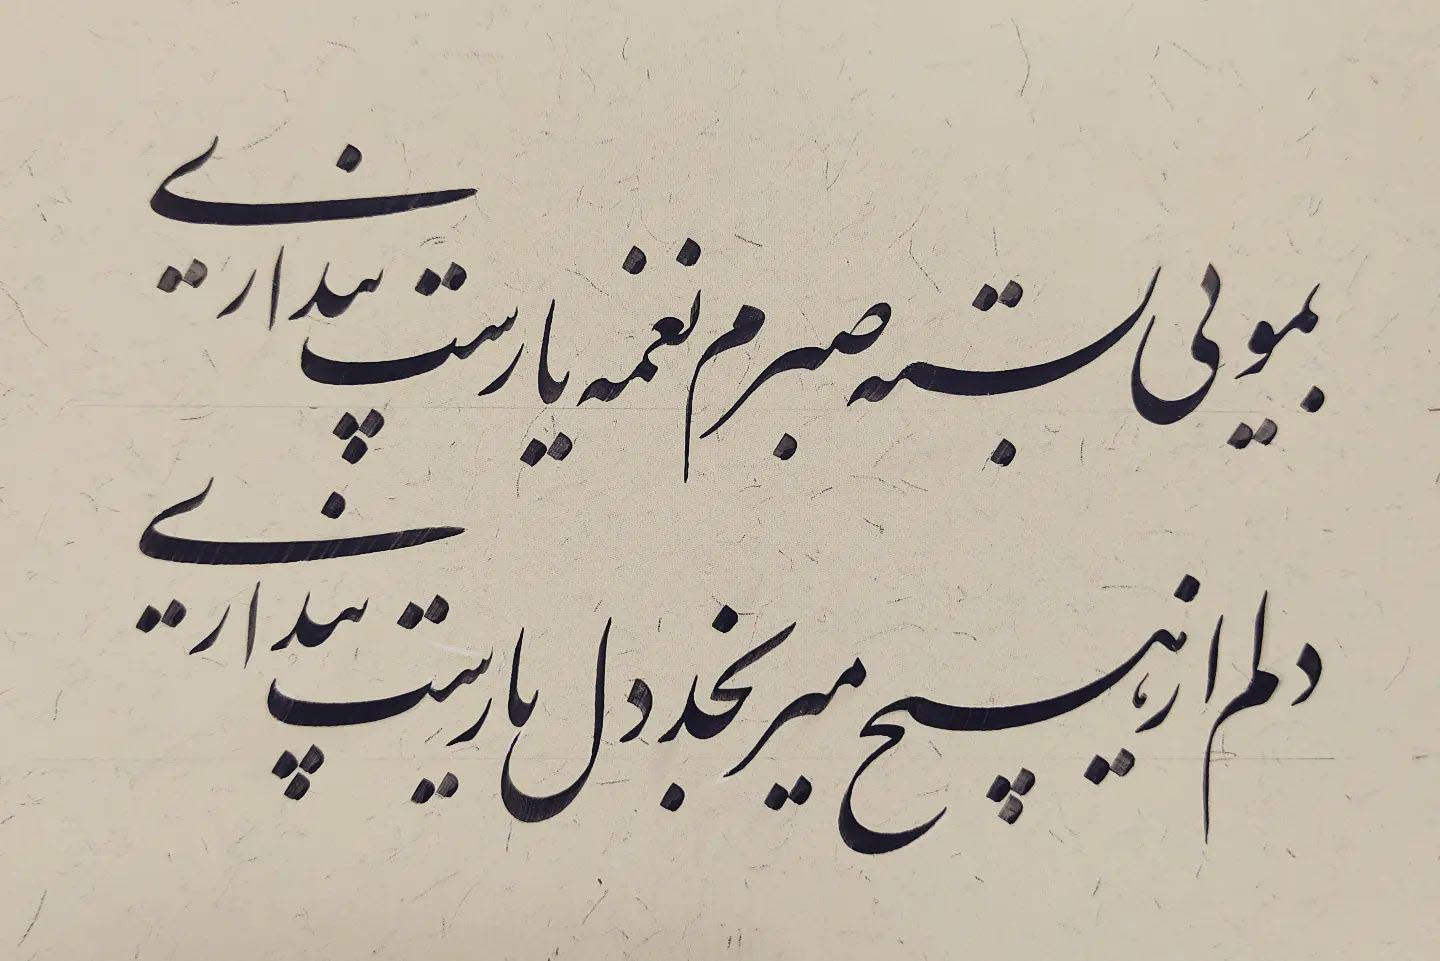 بمویی بسته صبرم نغمه یارست پنداری
دلم از هیچ میرنجد دل یارست پنداری